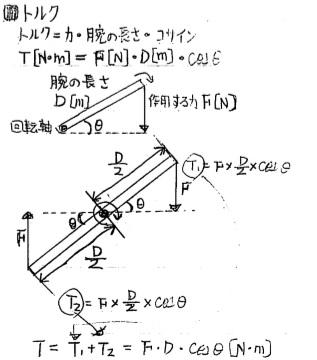 圖トルク
トルク=力・腕の長さ・コサイン
T[N・m] = F[N]・D[m]・cosθ
腕の長さ
D[m]
作用する力F[N]
回転軸
θ
D/2
T₁=F×D/2×cosθ
F
θ
θ
F
D/2
T₂=F×D/2×cosθ
T = T₁+T₂ = F・D・cosθ [N・m]